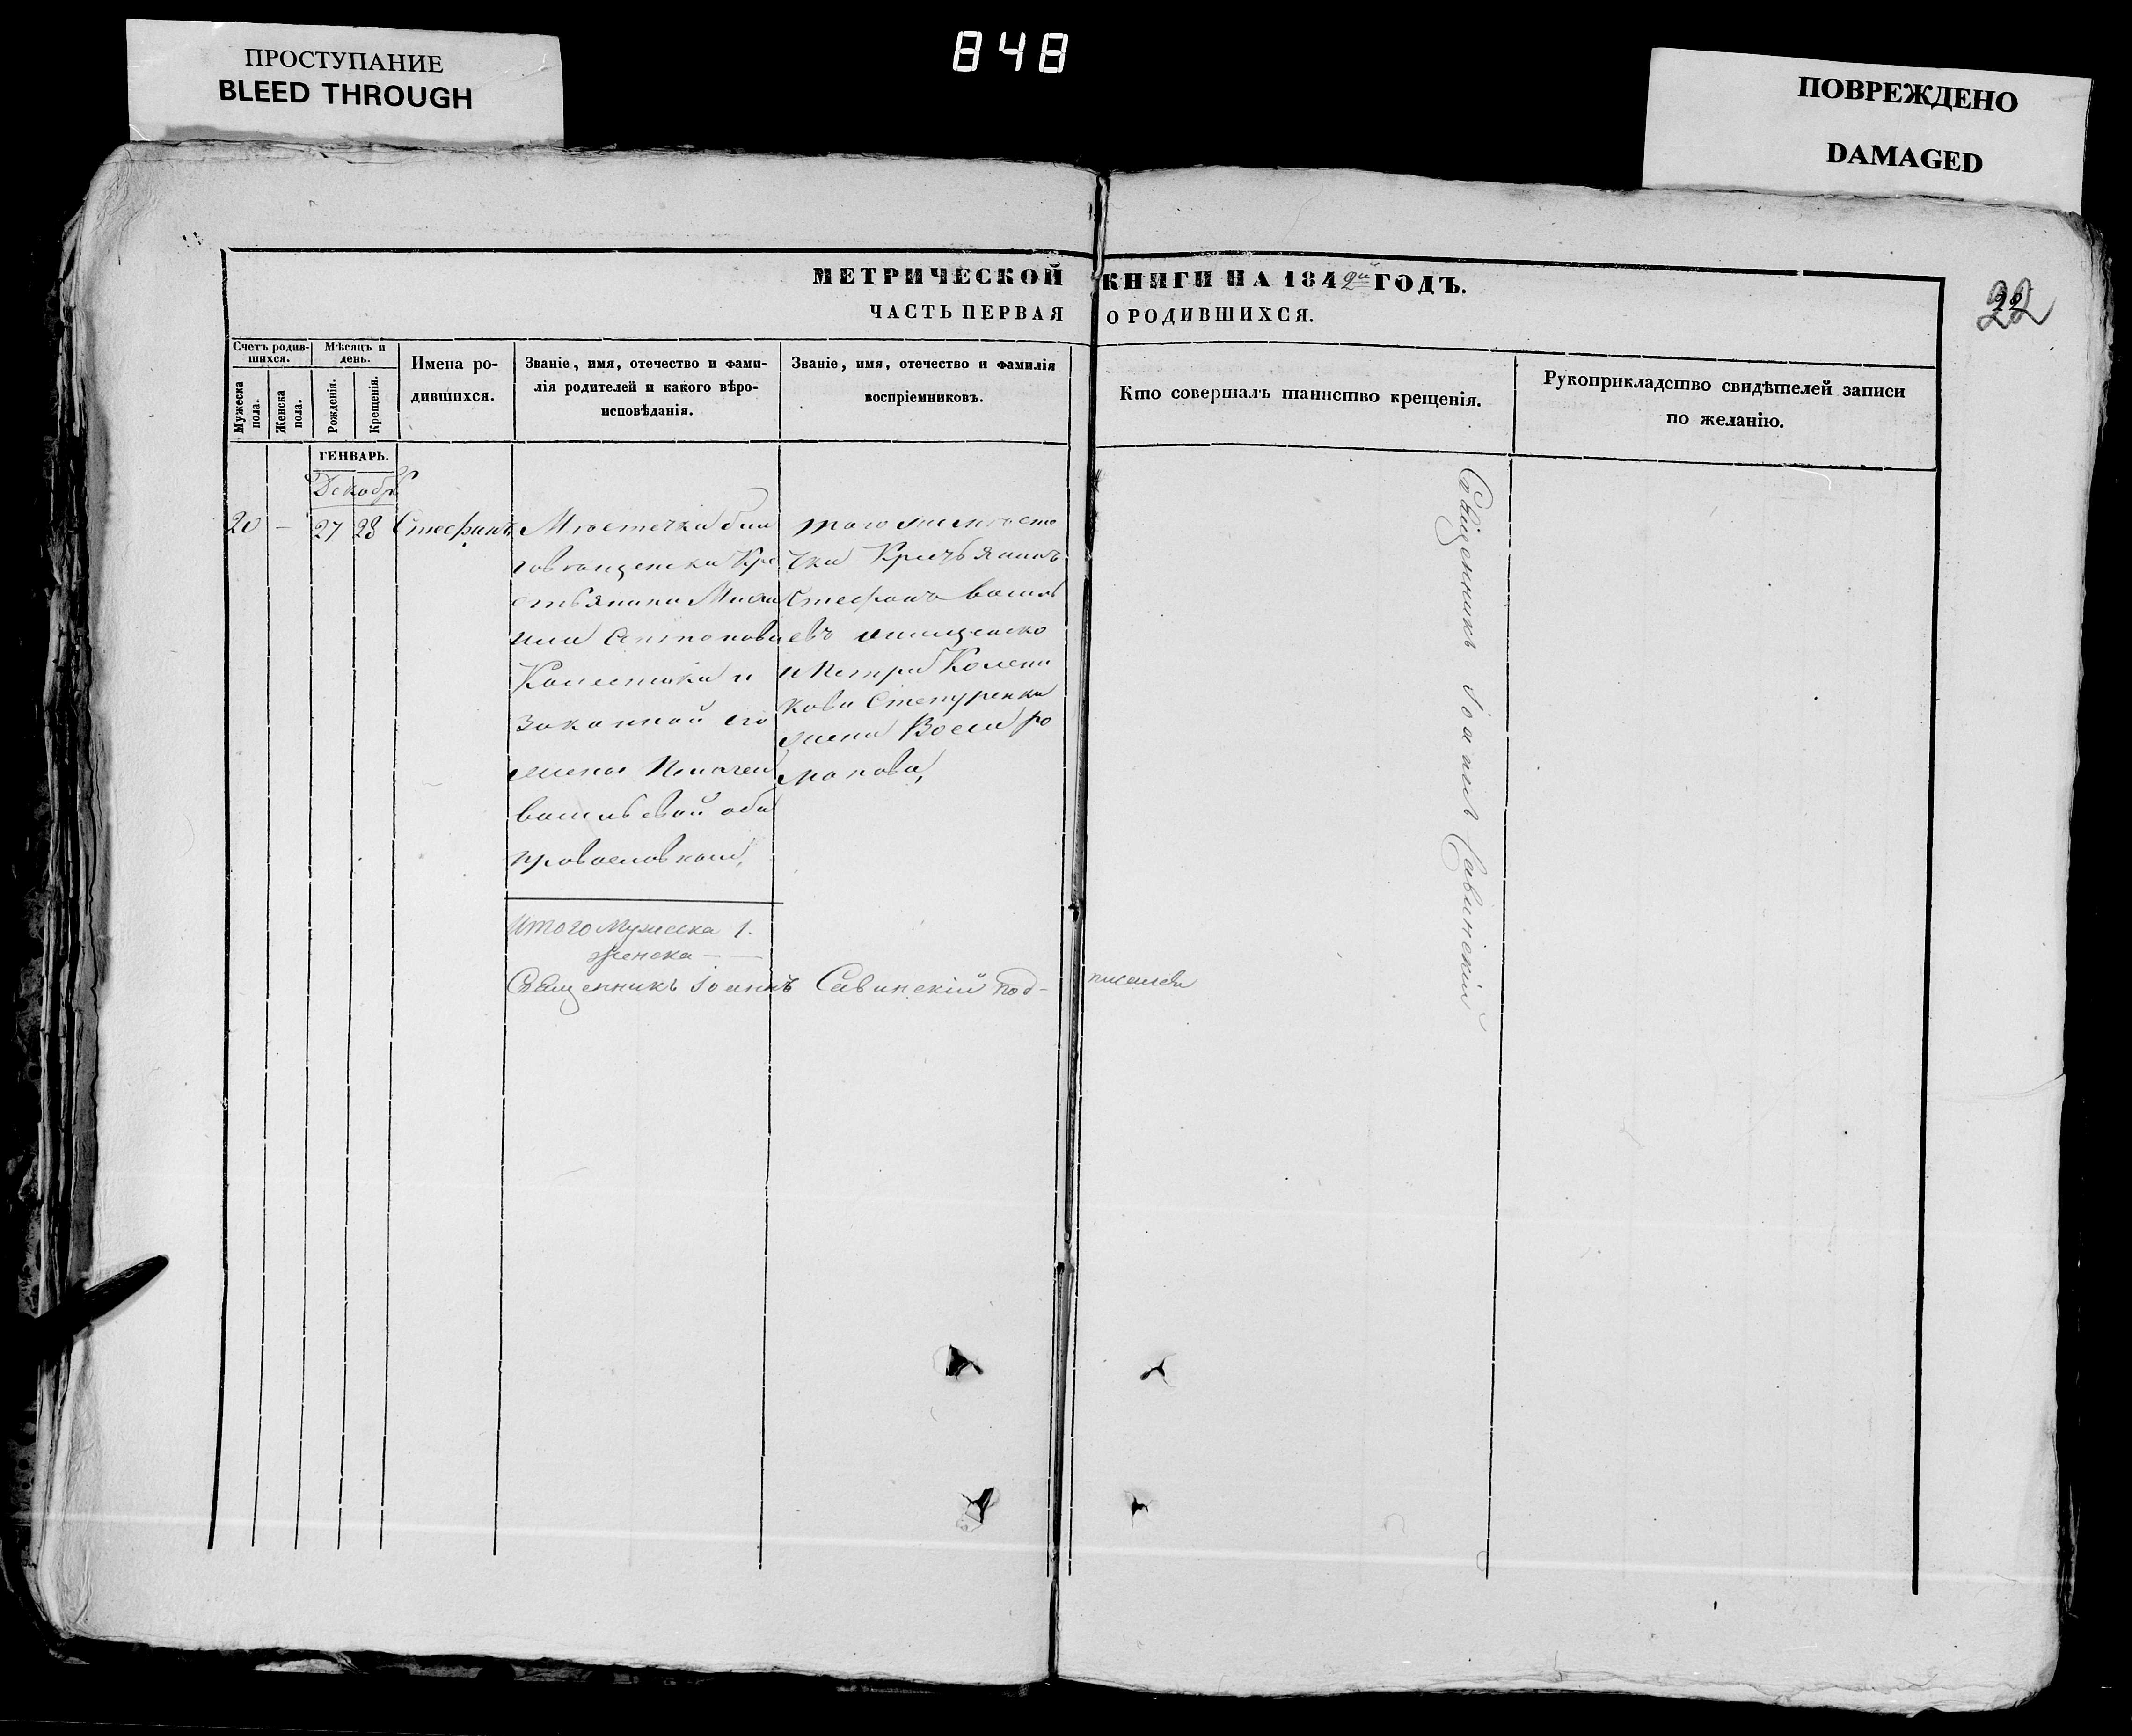 848
ПРОСТУПАНИЕ
BLEED THROUGH
ПОВРЕЖДЕНО
DAMAGED
22
МЕТРИЧЕСКОЙ КНИГИ НА 1842й ГОДЪ.
ЧАСТЬ ПЕРВАЯ О РОДИВШИХСЯ.
Счетъ родив-
шихся.
Мужеска
пола.
Женска
пола.
Мѣсяцъ и
день.
Рожденія.
Крещенія.
Имена ро-
дившихся.
Званіе, имя, отечество и фами-
лія родителей и какого вѣро-
исповѣданія.
Званіе, имя, отечество и фамилія
воспріемниковъ.
Кто совершалъ таинство крещенія.
Рукоприкладство свидѣтелей записи
по желанію.
ГЕНВАРЬ.
Декабр
20 — 27 28 Стефанъ
Мѣстечка бла
говѣщенска Кре
стьянина Миха
ила
и
законной его
жены
васильевой оба
православные,
того же мѣсте
чка
Стефанъ василь
евъ
и Петра
кова
жена
манова,
Священникъ Іоаннъ Савинскій
Итого Мужеска 1.
женска — —
Священникъ Іоаннъ Савинскій под-
писался